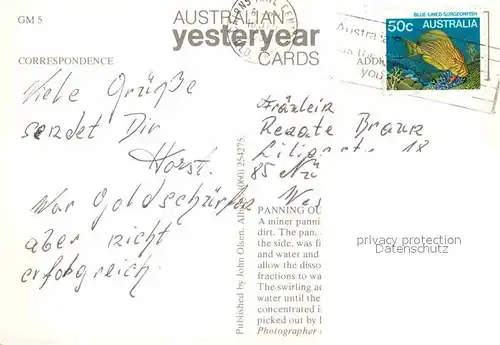 GM 5
AUSTRALIAN
yesteryear
CARDS
BLUE-LINED SURGEONFISH
50c
AUSTRALIA
CORRESPONDENCE
Viele Grüße
sendet Dir
Horst.
War Goldschürfen
aber nicht
erfolgreich.
Published by John Olsen, (060) 254275.
ADD
you
Fräulein
Renate Braun
18
85 Nü
Wes
PANNING OU
A miner panni
dirt. The pan,
the side, was fi
and water and
allow the disso
fractions to wa
The swirling ac
water until the
concentrated i
picked out by l
Photographer
privacy protection
Datenschutz